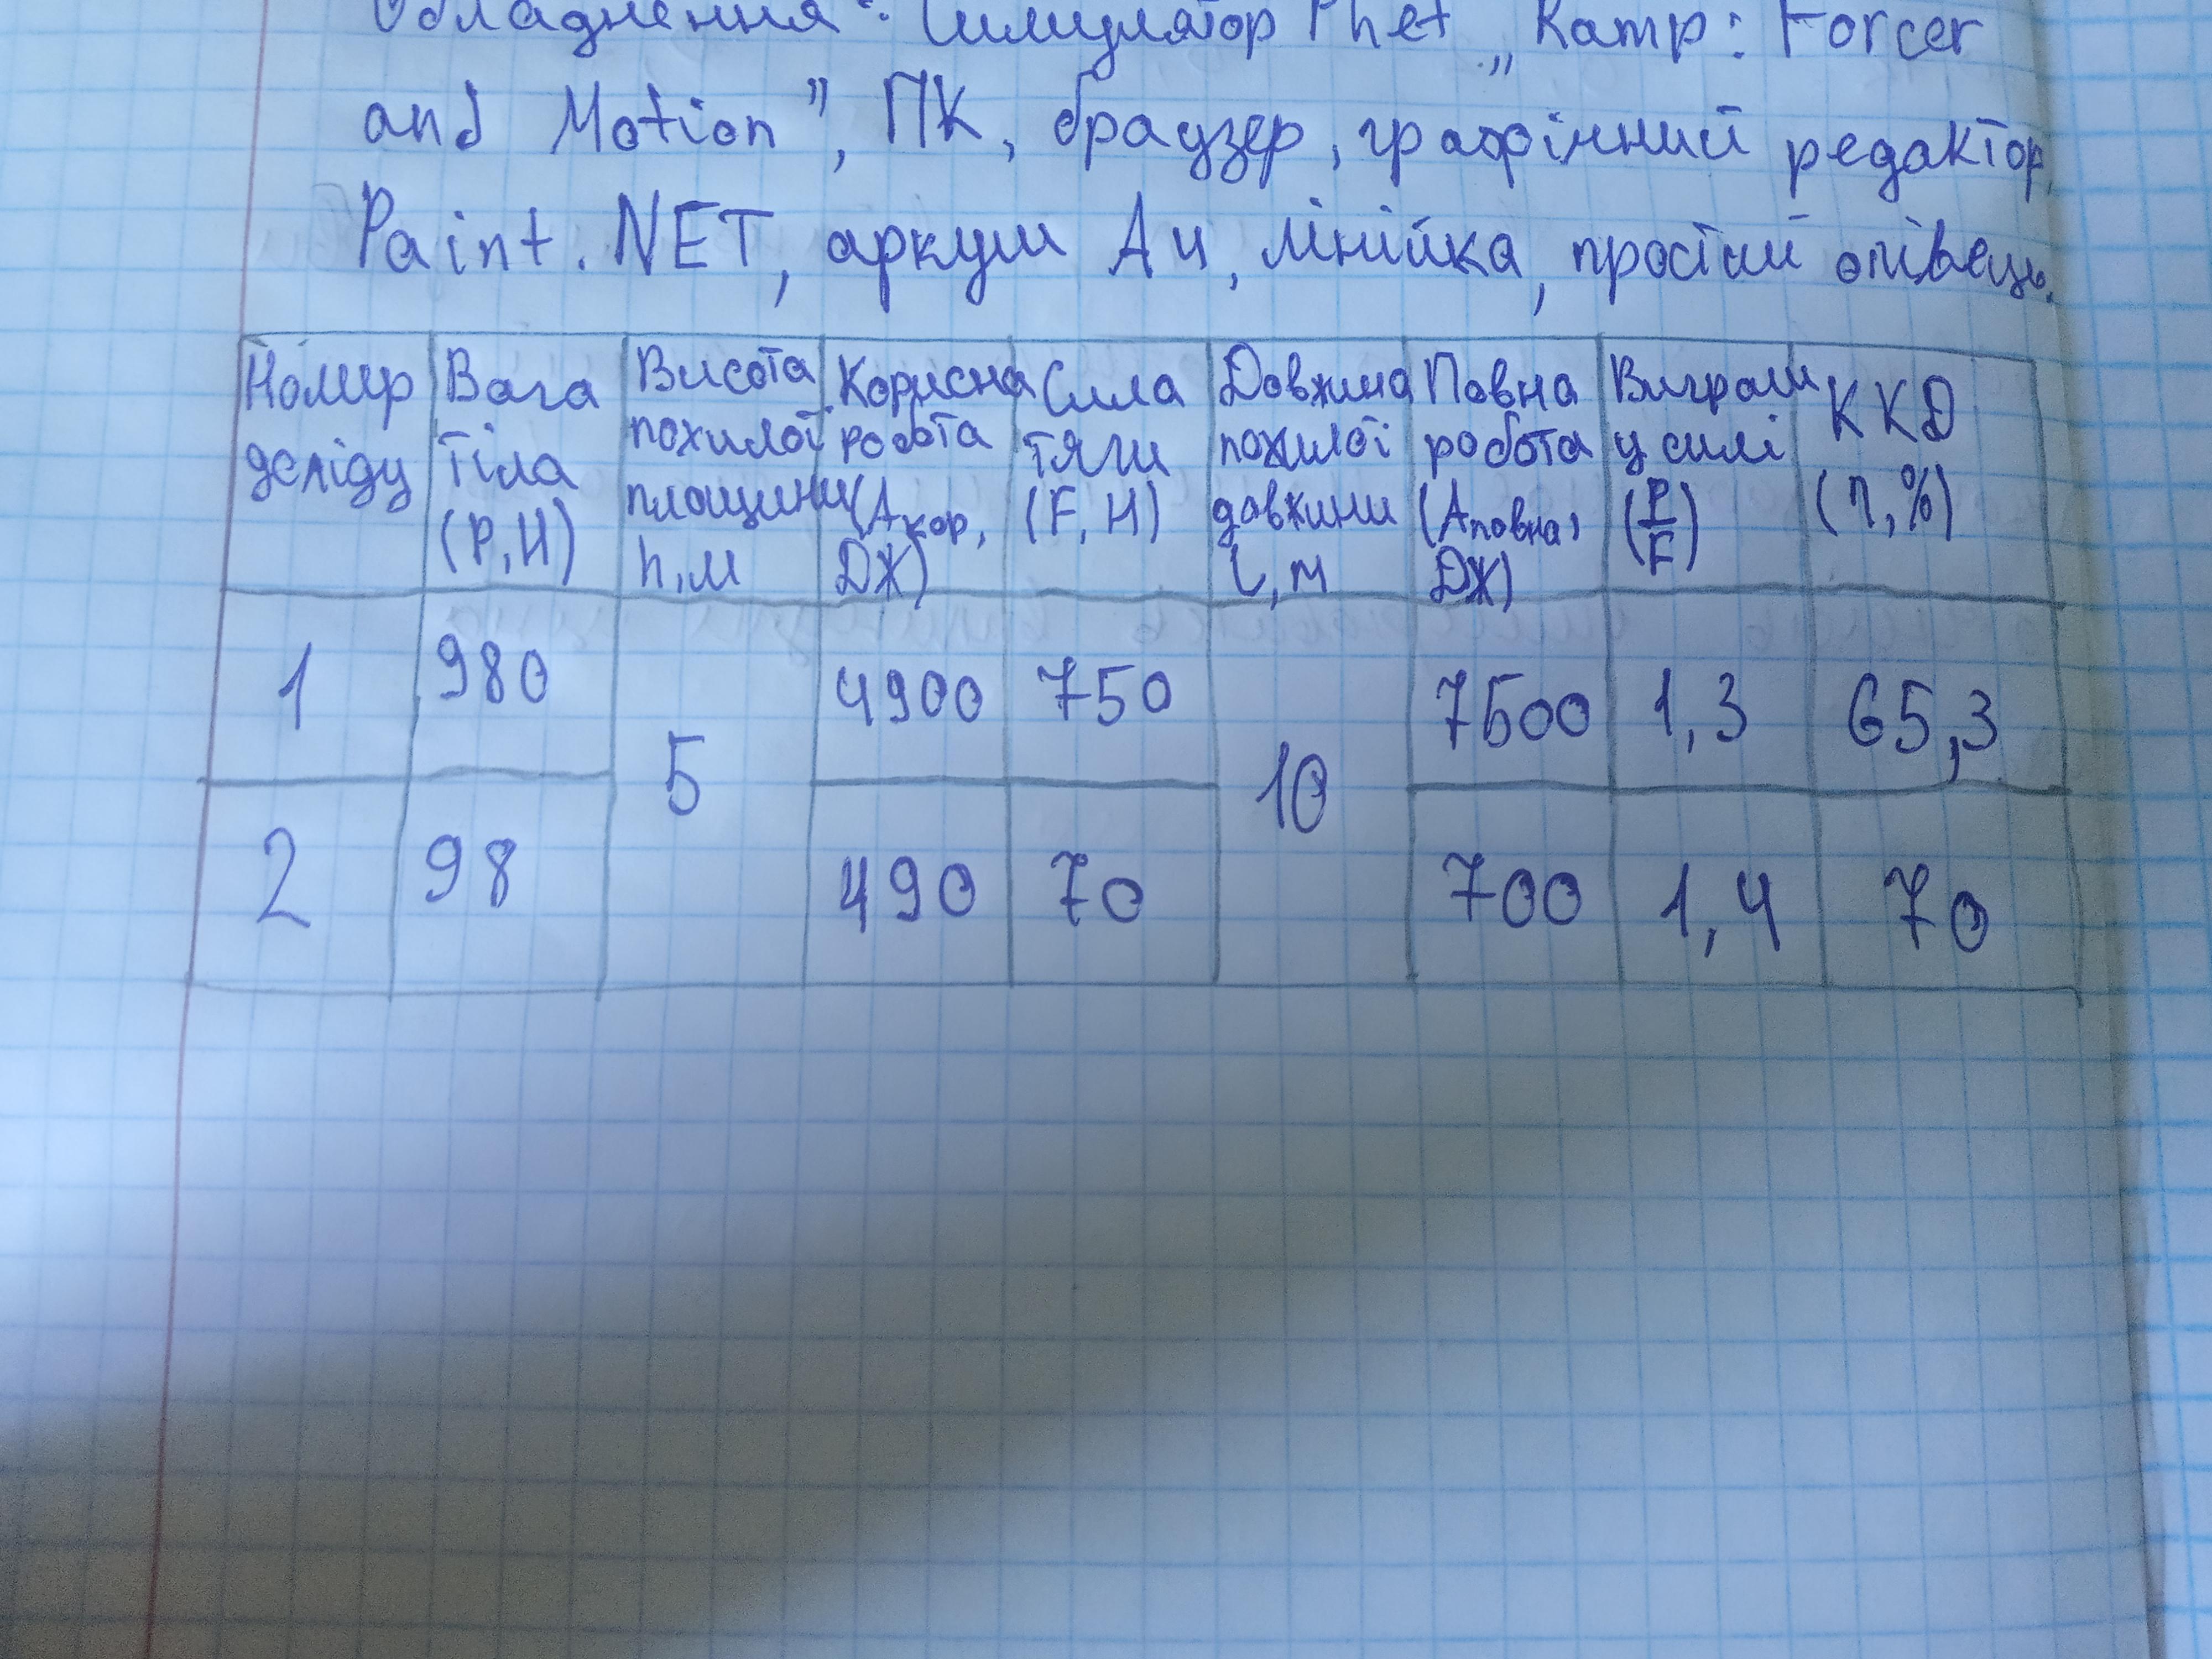 Обладнення: Симулятор Phet „Ramp: Forcer
and Motion”, ПК, браузер, графічний редактор
Paint.NET, аркуш А4, лінійка, простий олівець.
Номер
досліду
Вага
тіла
(P, H)
Висота
похилої
площини
h, м
Корисна
робота
(Aкор,
Дж)
Сила
тяги
(F, H)
Довжина
похилої
довжини
l, м
Повна
робота
(Aповна,
Дж)
Виграш
у силі
(P/F)
ККД
(η, %)
1
980
5
4900
750
10
7500
1,3
65,3
2
98
490
70
700
1,4
70